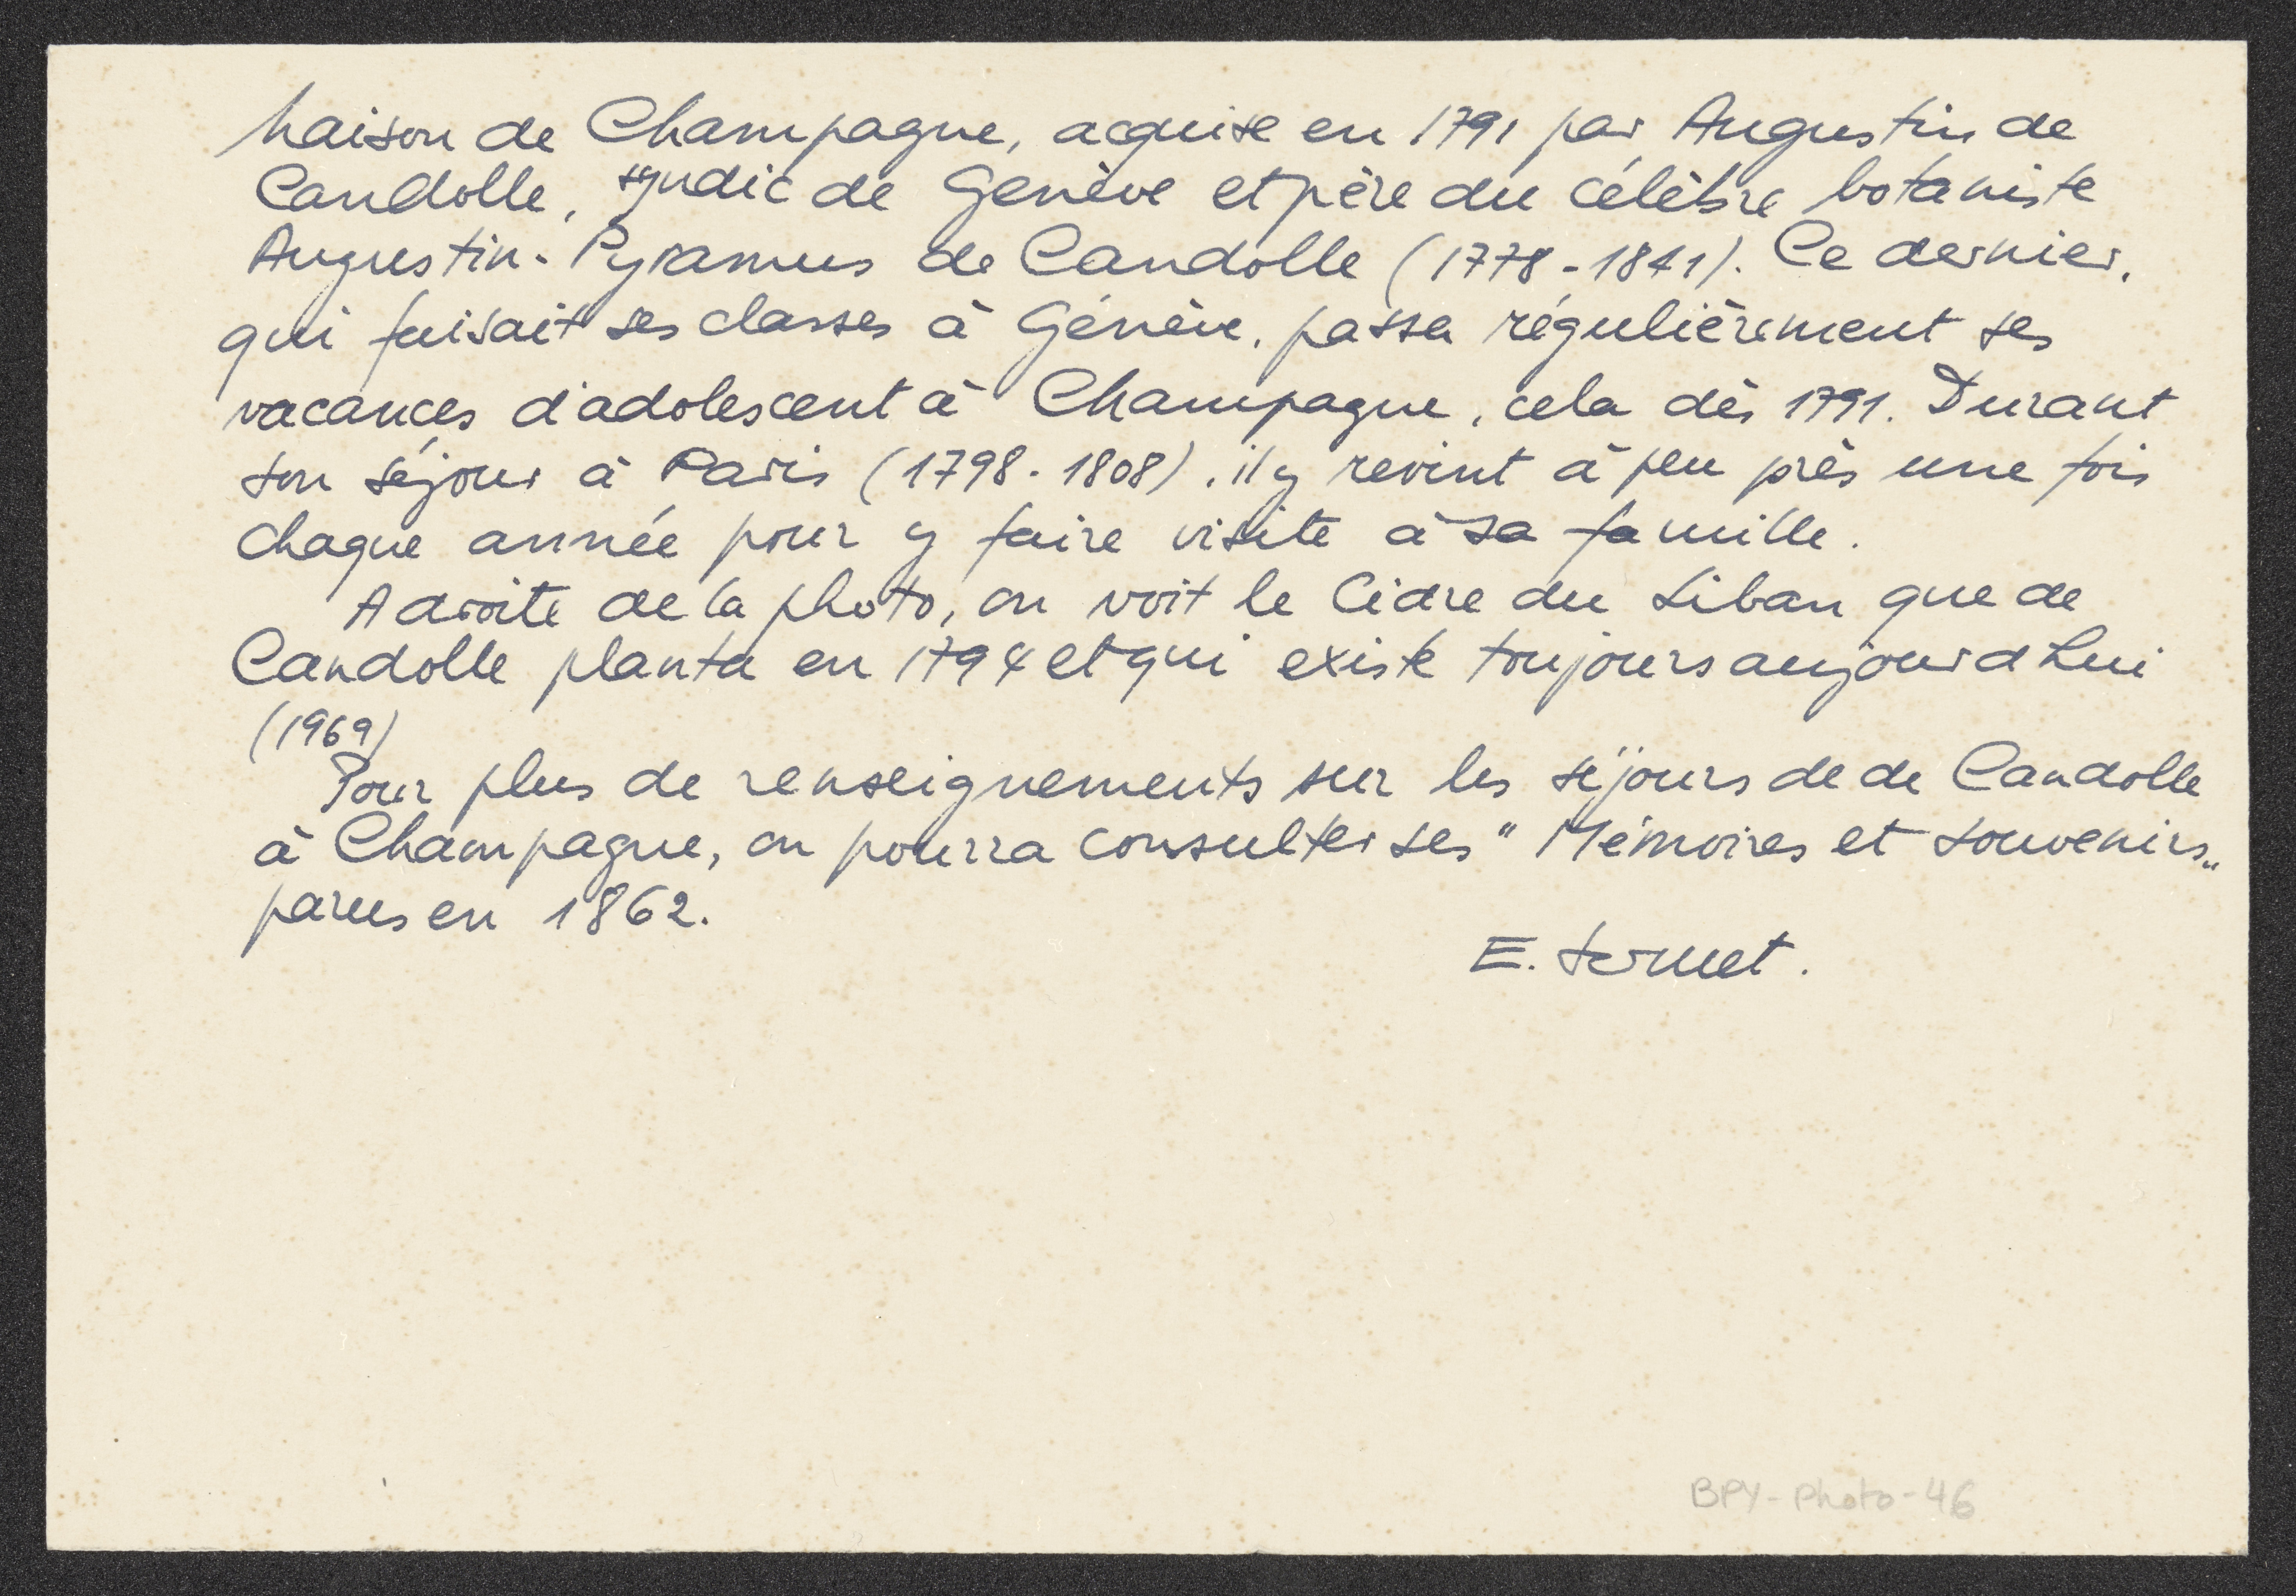 Maison de Champagne, acquise en 1791 par Augustin de
Candolle, syndic de Genève et père du célèbre botaniste
Augustin-Pyramus de Candolle (1778-1841). Ce dernier,
qui faisait ses classes à Génève, passa régulièrement ses
vacances d'adolescent à Champagne, cela dès 1791. Durant
son séjour à Paris (1798-1808), il y revint à peu près une fois
chaque année pour y faire visite à sa famille.
A droite de la photo, on voit le Cèdre du Liban que de
Candolle planta en 1794 et qui existe toujours aujourd'hui
(1969)
Pour plus de renseignements sur les séjours de de Candolle
à Champagne, on pourra consulter ses "Mémoires et souvenirs„
parus en 1862.
E. Sermet.
BPY-Photo-46